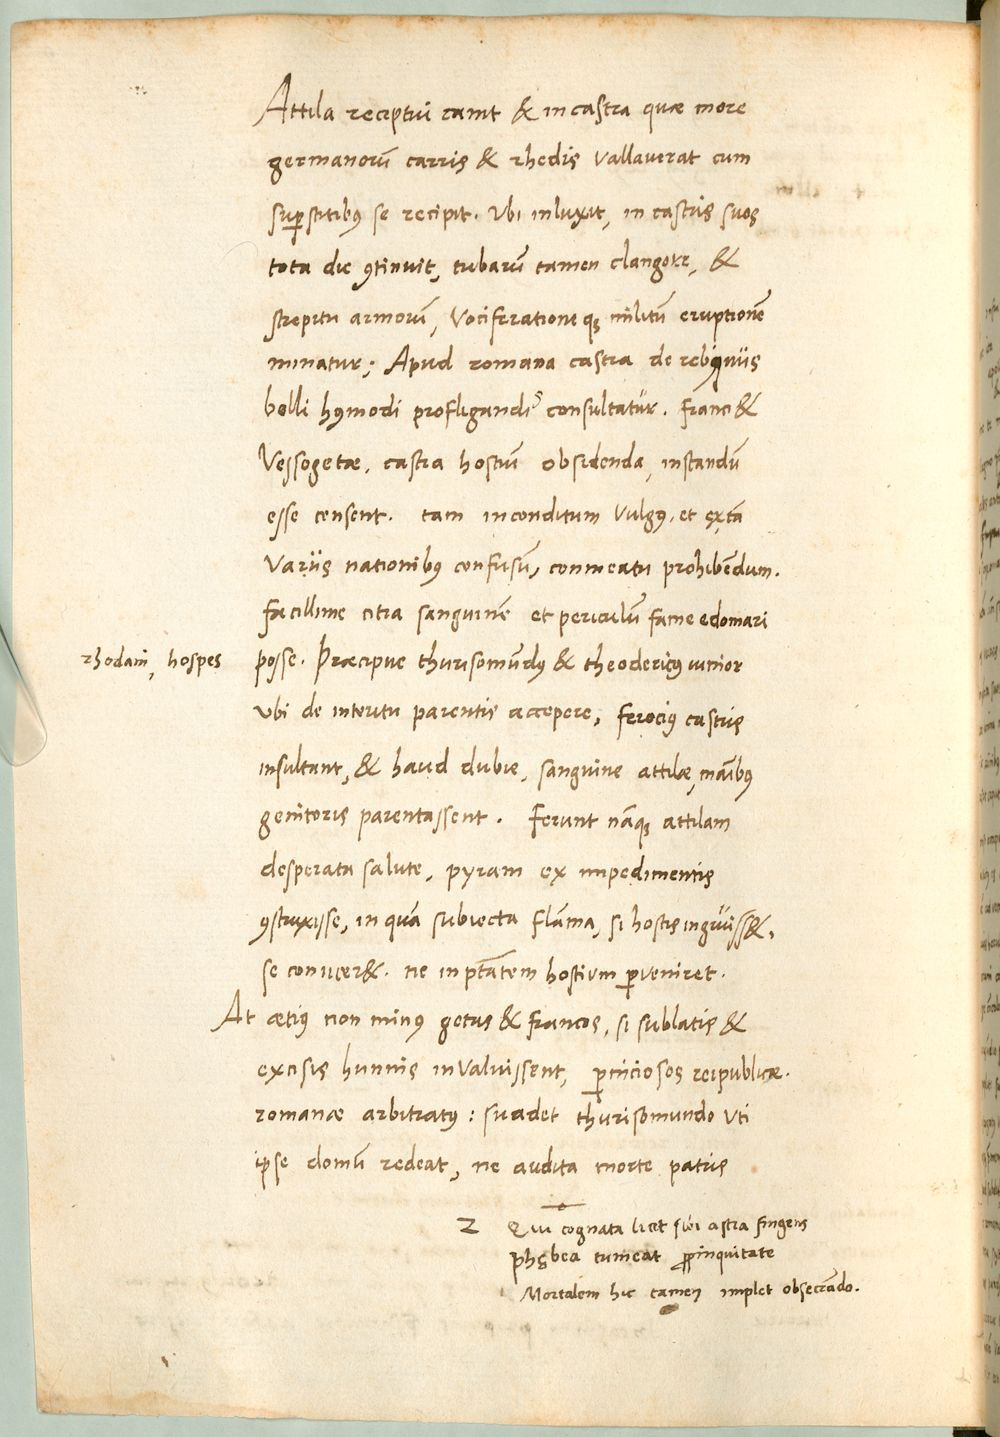 Attila receptui canit & in castra quæ more
germanorū carris & rhedis vallaverat cum
suꝑstitibꝰ se recipit. Ubi inluxit, in castris suos
tota die ꝯtinuit, tubarū tamen clangore, &
strepitu armorū, Vociferatione qꝫ militū eruptionē
minatur; Apud romana castra de rebꝰ
belli hꝰmodi profligandi consultatur. franci &
Vessogetæ, castra hostiū obsidenda, instandū
esse censent. tam inconditum vulgꝰ, et
Variis nationibꝰ confusū, conmeatu prohibēdum.
facillime citra sanguinē et periculū fame edomari
rhodani, hospes
posse. Præcipue thurisomūdꝰ & theodericꝰ iunior
Ubi de interitu parentis accepere, ferociꝰ castris
insultant, & haud dubie, sanguine attilæ, māibꝰ
genitoris parentassent. Ferunt nāqꝫ attilam
desperata salute, pyram ex impedimentis
ꝯstruxisse, in quā subiecta flāma, si hostis ingruiss&,
se conicer&. ne in ptātem hostium ꝑveniret.
At ætiꝰ non minꝰ getas & francos, si sublatis &
excisis hunnis invaluissent, ꝑniciosos reipublicæ.
romanæ arbitratꝰ: suadet thurisomundo uti
ipse domū redeat, ne audita morte patris
2 Qui cognata licet sibi astra fingens
phębea tumeat ꝓpinquitate
Mortalem hic tamen implet obsecrādo.